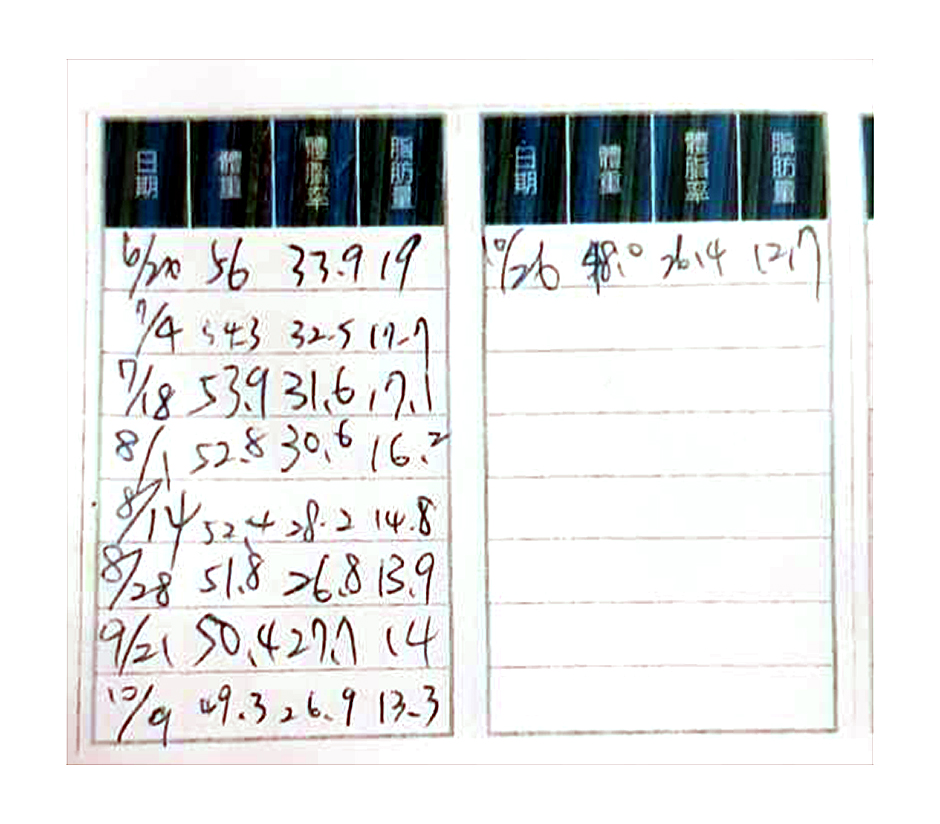 日期 體重 體脂率 脂肪量
6/20 56 33.9 19
7/4 54.3 32.5 17.7
7/18 53.9 31.6 17.1
8/1 52.8 30.6 16.2
8/14 52.4 28.2 14.8
8/28 51.8 26.8 13.9
9/21 50.4 27.7 14
10/9 49.3 26.9 13.3
日期 體重 體脂率 脂肪量
10/26 48.0 26.4 12.7